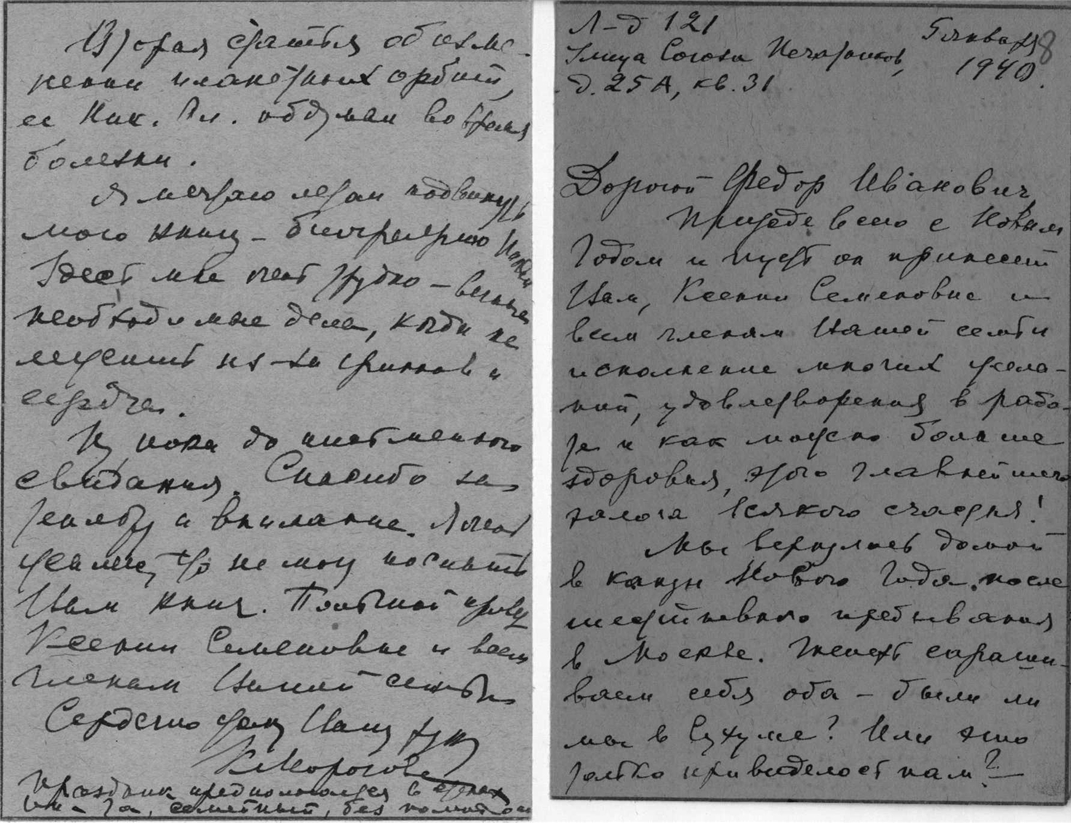 Вторая статья об изме-
нении планетных орбит,
ее Ник. Ал. обдумал во время
болезни.
Я мечтаю летом подвинуть
мою книгу – биографию
Здесь мне очень трудно – вечные
необходимые дела, когда не
мешает из-за гриппов и
сердца.
Ну пока до письменного
свидания. Спасибо за
и внимание. Я очень
жалею, что не могу послать
Вам книг. Большой привет
Ксении Семеновне и всем
членам Вашей семьи
Сердечно жму Вашу руку
К. Морозова
Праздник предполагается в стенах
ин-та, семейный, без помпы
Л-д 121
Улица Союза Печатников,
д. 25А, кв. 31
5 января
1940.
8
Дорогой Федор Иванович,
Прежде всего с Новым
Годом и пусть он принесет
Вам, Ксении Семеновне и
всем членам Вашей семьи
исполнение многих жела-
ний, удовлетворения в рабо-
те и как можно больше
здоровья, этого главнейшего
залога всякого счастья!
Мы вернулись домой
в канун Нового Года, после
шестидневного пребывания
в Москве. Теперь спраши-
ваем себя оба – были ли
мы в Сухуме? Или это
только привиделось нам?